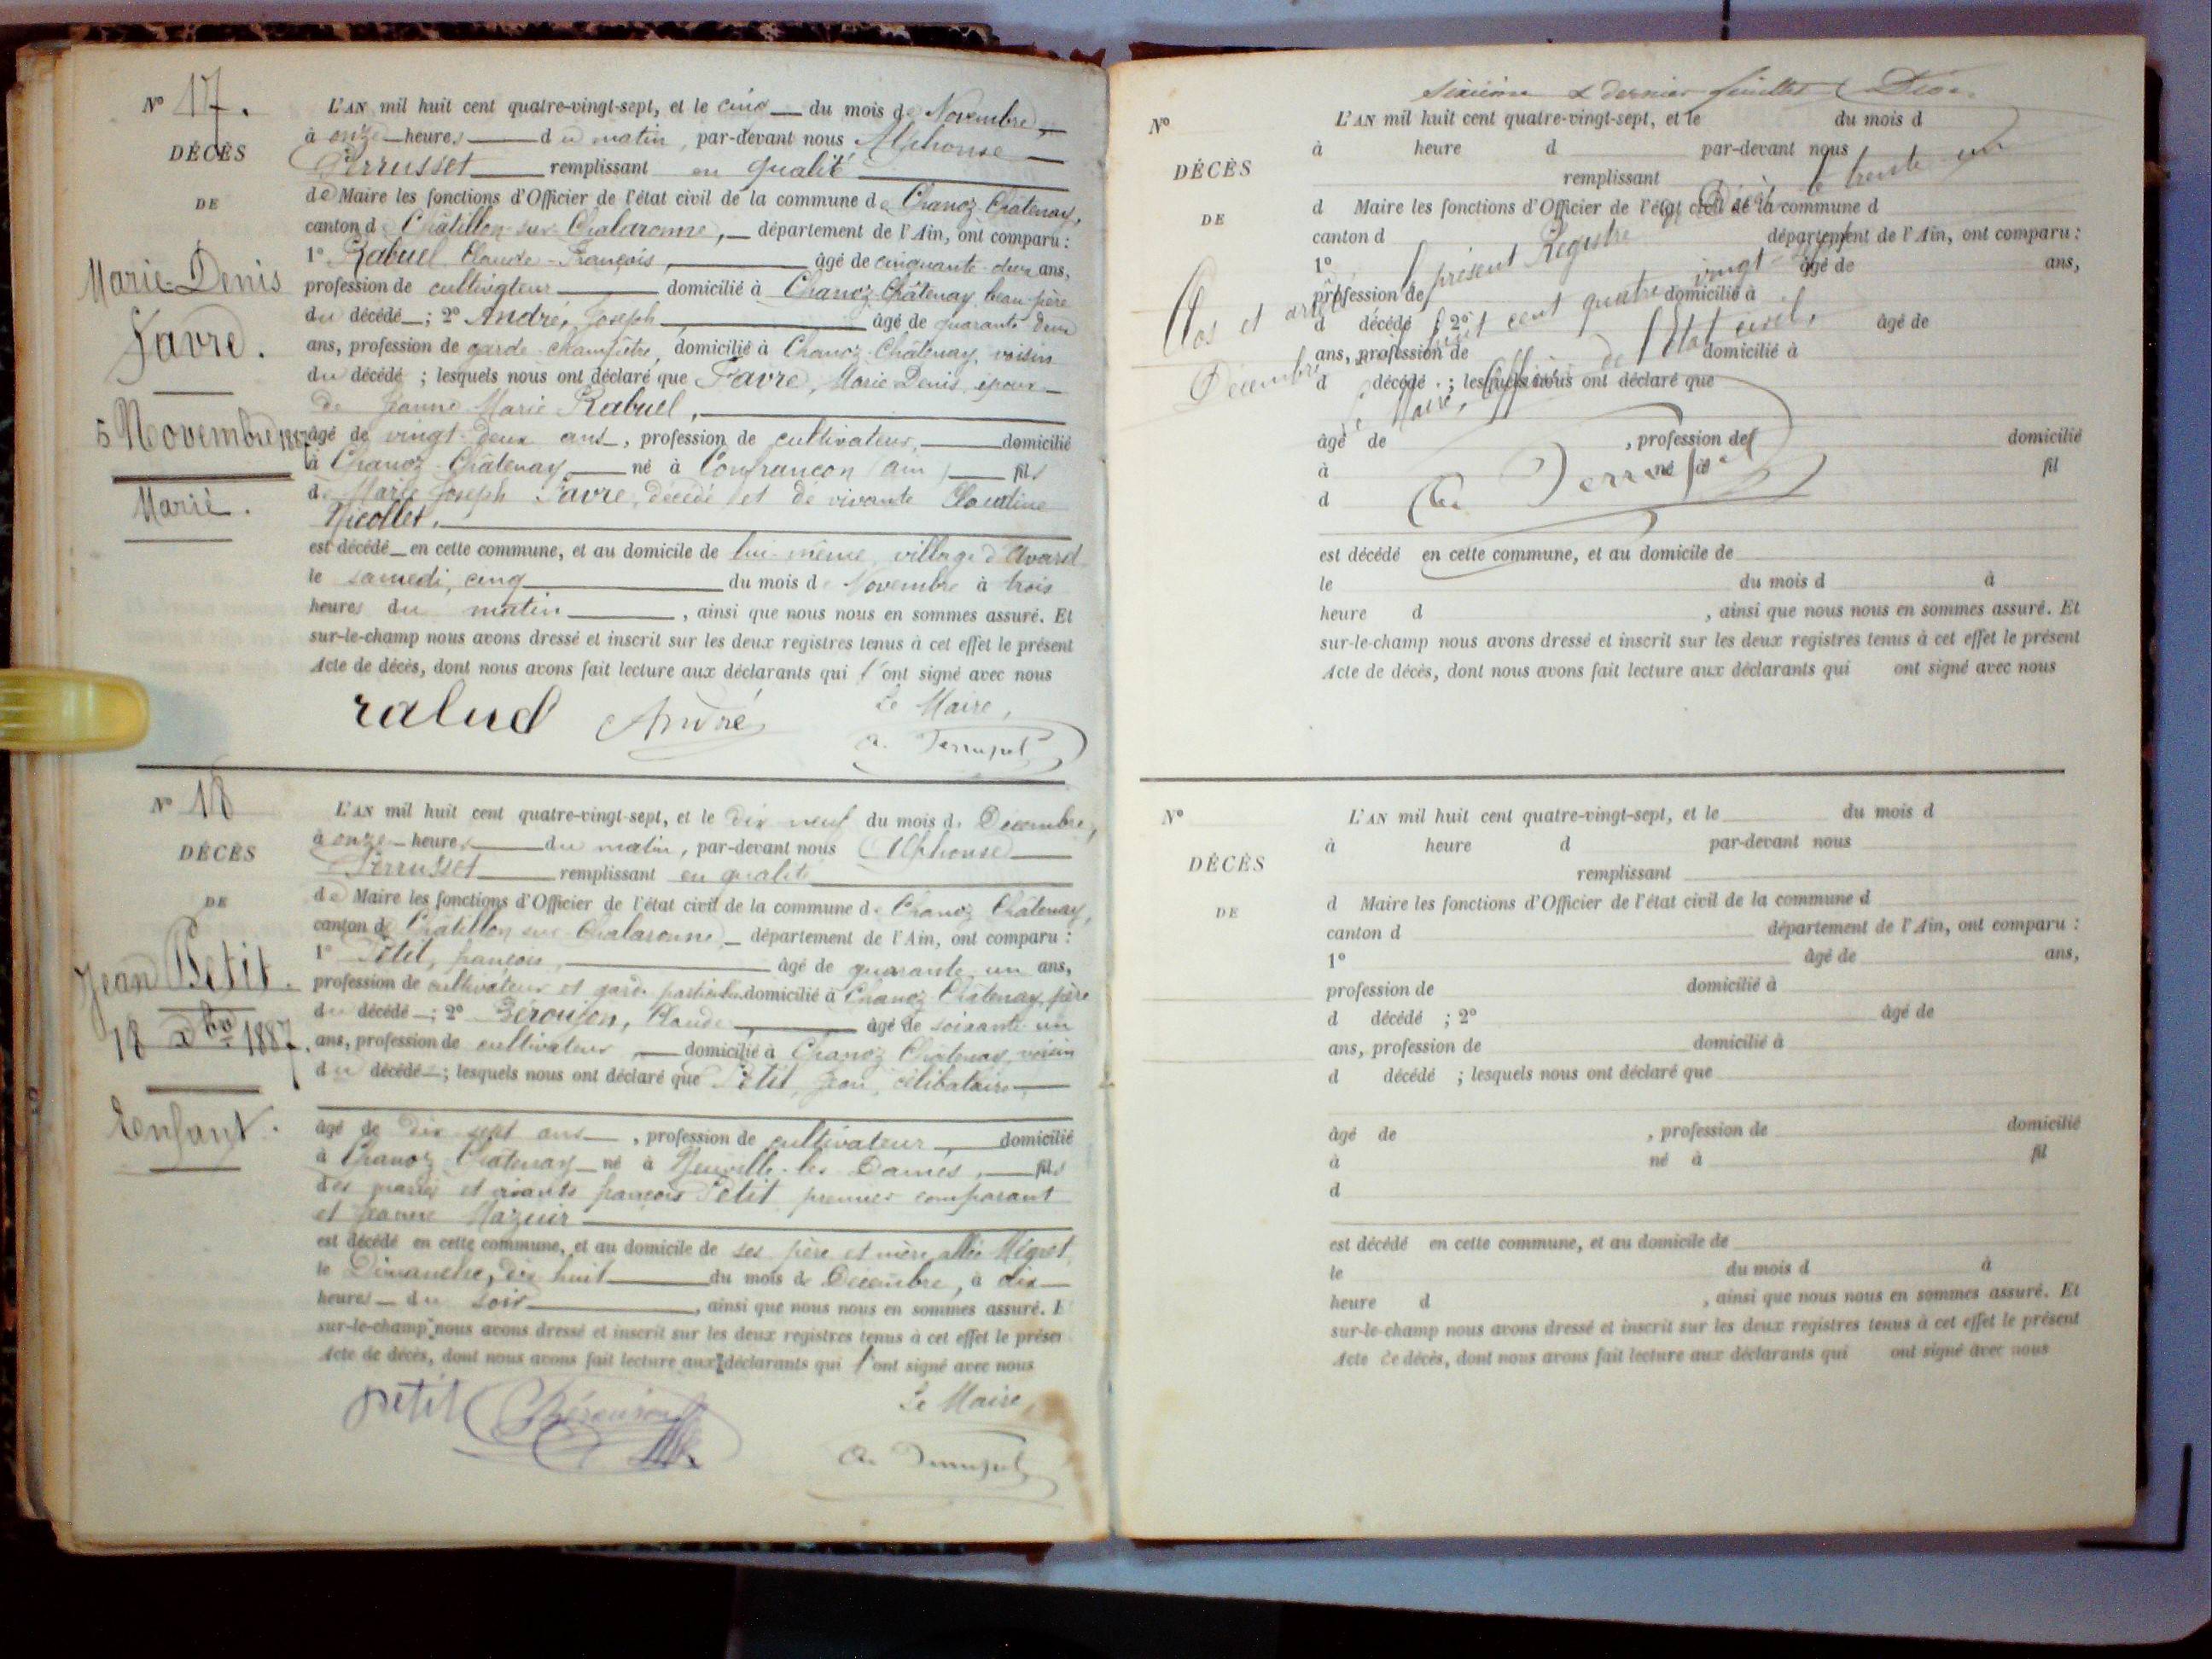 N° 17.
DÉCÈS
DE
Marie-Denis
Favre.
5 Novembre 1887
Marié.
L'AN mil huit cent quatre-vingt-sept, et le cinq du mois de Novembre,
à onze heures du matin, par-devant nous Alphonse
Perrusset remplissant en qualité
de Maire les fonctions d'Officier de l'état civil de la commune de Chanoz-Châtenay,
canton de Châtillon-sur-Chalaronne, département de l'Ain, ont comparu :
1° Rabuel Claude-François, âgé de cinquante-deux ans,
profession de cultivateur domicilié à Chanoz-Châtenay, beau-père
du décédé ; 2° André, Joseph âgé de quarante deux
ans, profession de garde-champêtre, domicilié à Chanoz-Châtenay, voisin
du décédé ; lesquels nous ont déclaré que Favre, Marie Denis, époux
de Jeanne Marie Rabuel,
âgé de vingt-deux ans, profession de cultivateur, domicilié
à Chanoz-Châtenay né à Confrançon (Ain) fils
de Marie Joseph Favre, décédé et de vivante Claudine
Nicollet.
est décédé en cette commune, et au domicile de lui-même, village d'
le samedi, cinq du mois de Novembre à trois
heures du matin, ainsi que nous nous en sommes assuré. Et
sur-le-champ nous avons dressé et inscrit sur les deux registres tenus à cet effet le présent
Acte de décès, dont nous avons fait lecture aux déclarants qui l'ont signé avec nous
André
Le Maire,
N° 18
DÉCÈS
DE
Jean Petit.
18 Xbre 1887.
Enfant.
L'AN mil huit cent quatre-vingt-sept, et le dix neuf du mois de Décembre,
à onze heures du matin, par-devant nous Alphonse
Perrusset remplissant en qualité
de Maire les fonctions d'Officier de l'état civil de la commune de Chanoz Châtenay,
canton de Châtillon sur Chalaronne, département de l'Ain, ont comparu :
1° Petit, françois, âgé de quarante un ans,
profession de cultivateur et garde particulier domicilié à Chanoz Châtenay, père
du décédé ; 2° Béroujon, Claude âgé de soixante un
ans, profession de cultivateur, domicilié à Chanoz Châtenay, voisin
du décédé ; lesquels nous ont déclaré que Petit, Jean, célibataire
âgé de dix sept ans, profession de cultivateur, domicilié
à Chanoz Châtenay né à Neuville-les-Dames, fils
des mariés et vivants françois Petit premier comparant
et Jeanne Mazuir
est décédé en cette commune, et au domicile de ses père et mère,
le Dimanche, dix huit du mois de Décembre, à dix
heures du soir, ainsi que nous nous en sommes assuré. E
sur-le-champ nous avons dressé et inscrit sur les deux registres tenus à cet effet le présen
Acte de décès, dont nous avons fait lecture aux déclarants qui l'ont signé avec nous
petit Béroujon
Le Maire,
sixième & dernier feuillet
N°
DÉCÈS
DE
L'AN mil huit cent quatre-vingt-sept, et le du mois d
à heure d par-devant nous
remplissant
d Maire les fonctions d'Officier de l'état civil de la commune d
canton d département de l'Ain, ont comparu :
1° âgé de ans,
profession de domicilié à
d décédé ; 2° âgé de
ans, profession de domicilié à
d décédé ; lesquels nous ont déclaré que
âgé de , profession de domicilié
à né à fil
d
est décédé en cette commune, et au domicile de
le du mois d à
heure d , ainsi que nous nous en sommes assuré. Et
sur-le-champ nous avons dressé et inscrit sur les deux registres tenus à cet effet le présent
Acte de décès, dont nous avons fait lecture aux déclarants qui ont signé avec nous
Clos et arrêté présent Registre de Décès le trente un
Décembre mil huit cent quatre vingt
Le Maire, Officier de l'État civil,
N°
DÉCÈS
DE
L'AN mil huit cent quatre-vingt-sept, et le du mois d
à heure d par-devant nous
remplissant
d Maire les fonctions d'Officier de l'état civil de la commune d
canton d département de l'Ain, ont comparu :
1° âgé de ans,
profession de domicilié à
d décédé ; 2° âgé de
ans, profession de domicilié à
d décédé ; lesquels nous ont déclaré que
âgé de , profession de domicilié
à né à fil
d
est décédé en cette commune, et au domicile de
le du mois d à
heure d , ainsi que nous nous en sommes assuré. Et
sur-le-champ nous avons dressé et inscrit sur les deux registres tenus à cet effet le présent
Acte de décès, dont nous avons fait lecture aux déclarants qui ont signé avec nous